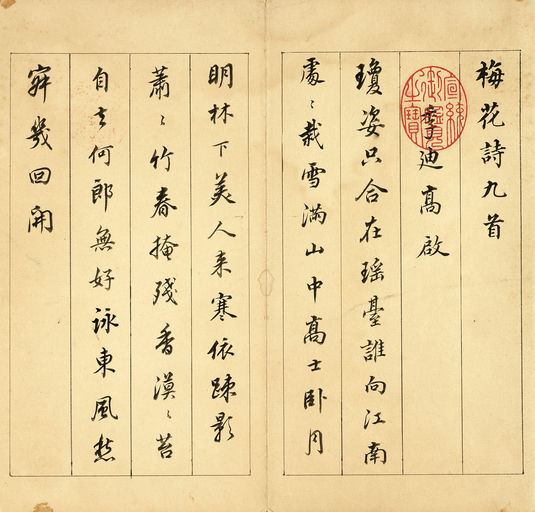 梅花詩九首
季迪高啟
瓊姿只合在瑤臺誰向江南
處〻栽雪滿山中高士臥月
明林下美人来寒依疎影
蕭〻竹春掩殘香漠〻苔
自去何郎無好詠東風愁
寂幾回開
宣統御覽之寶